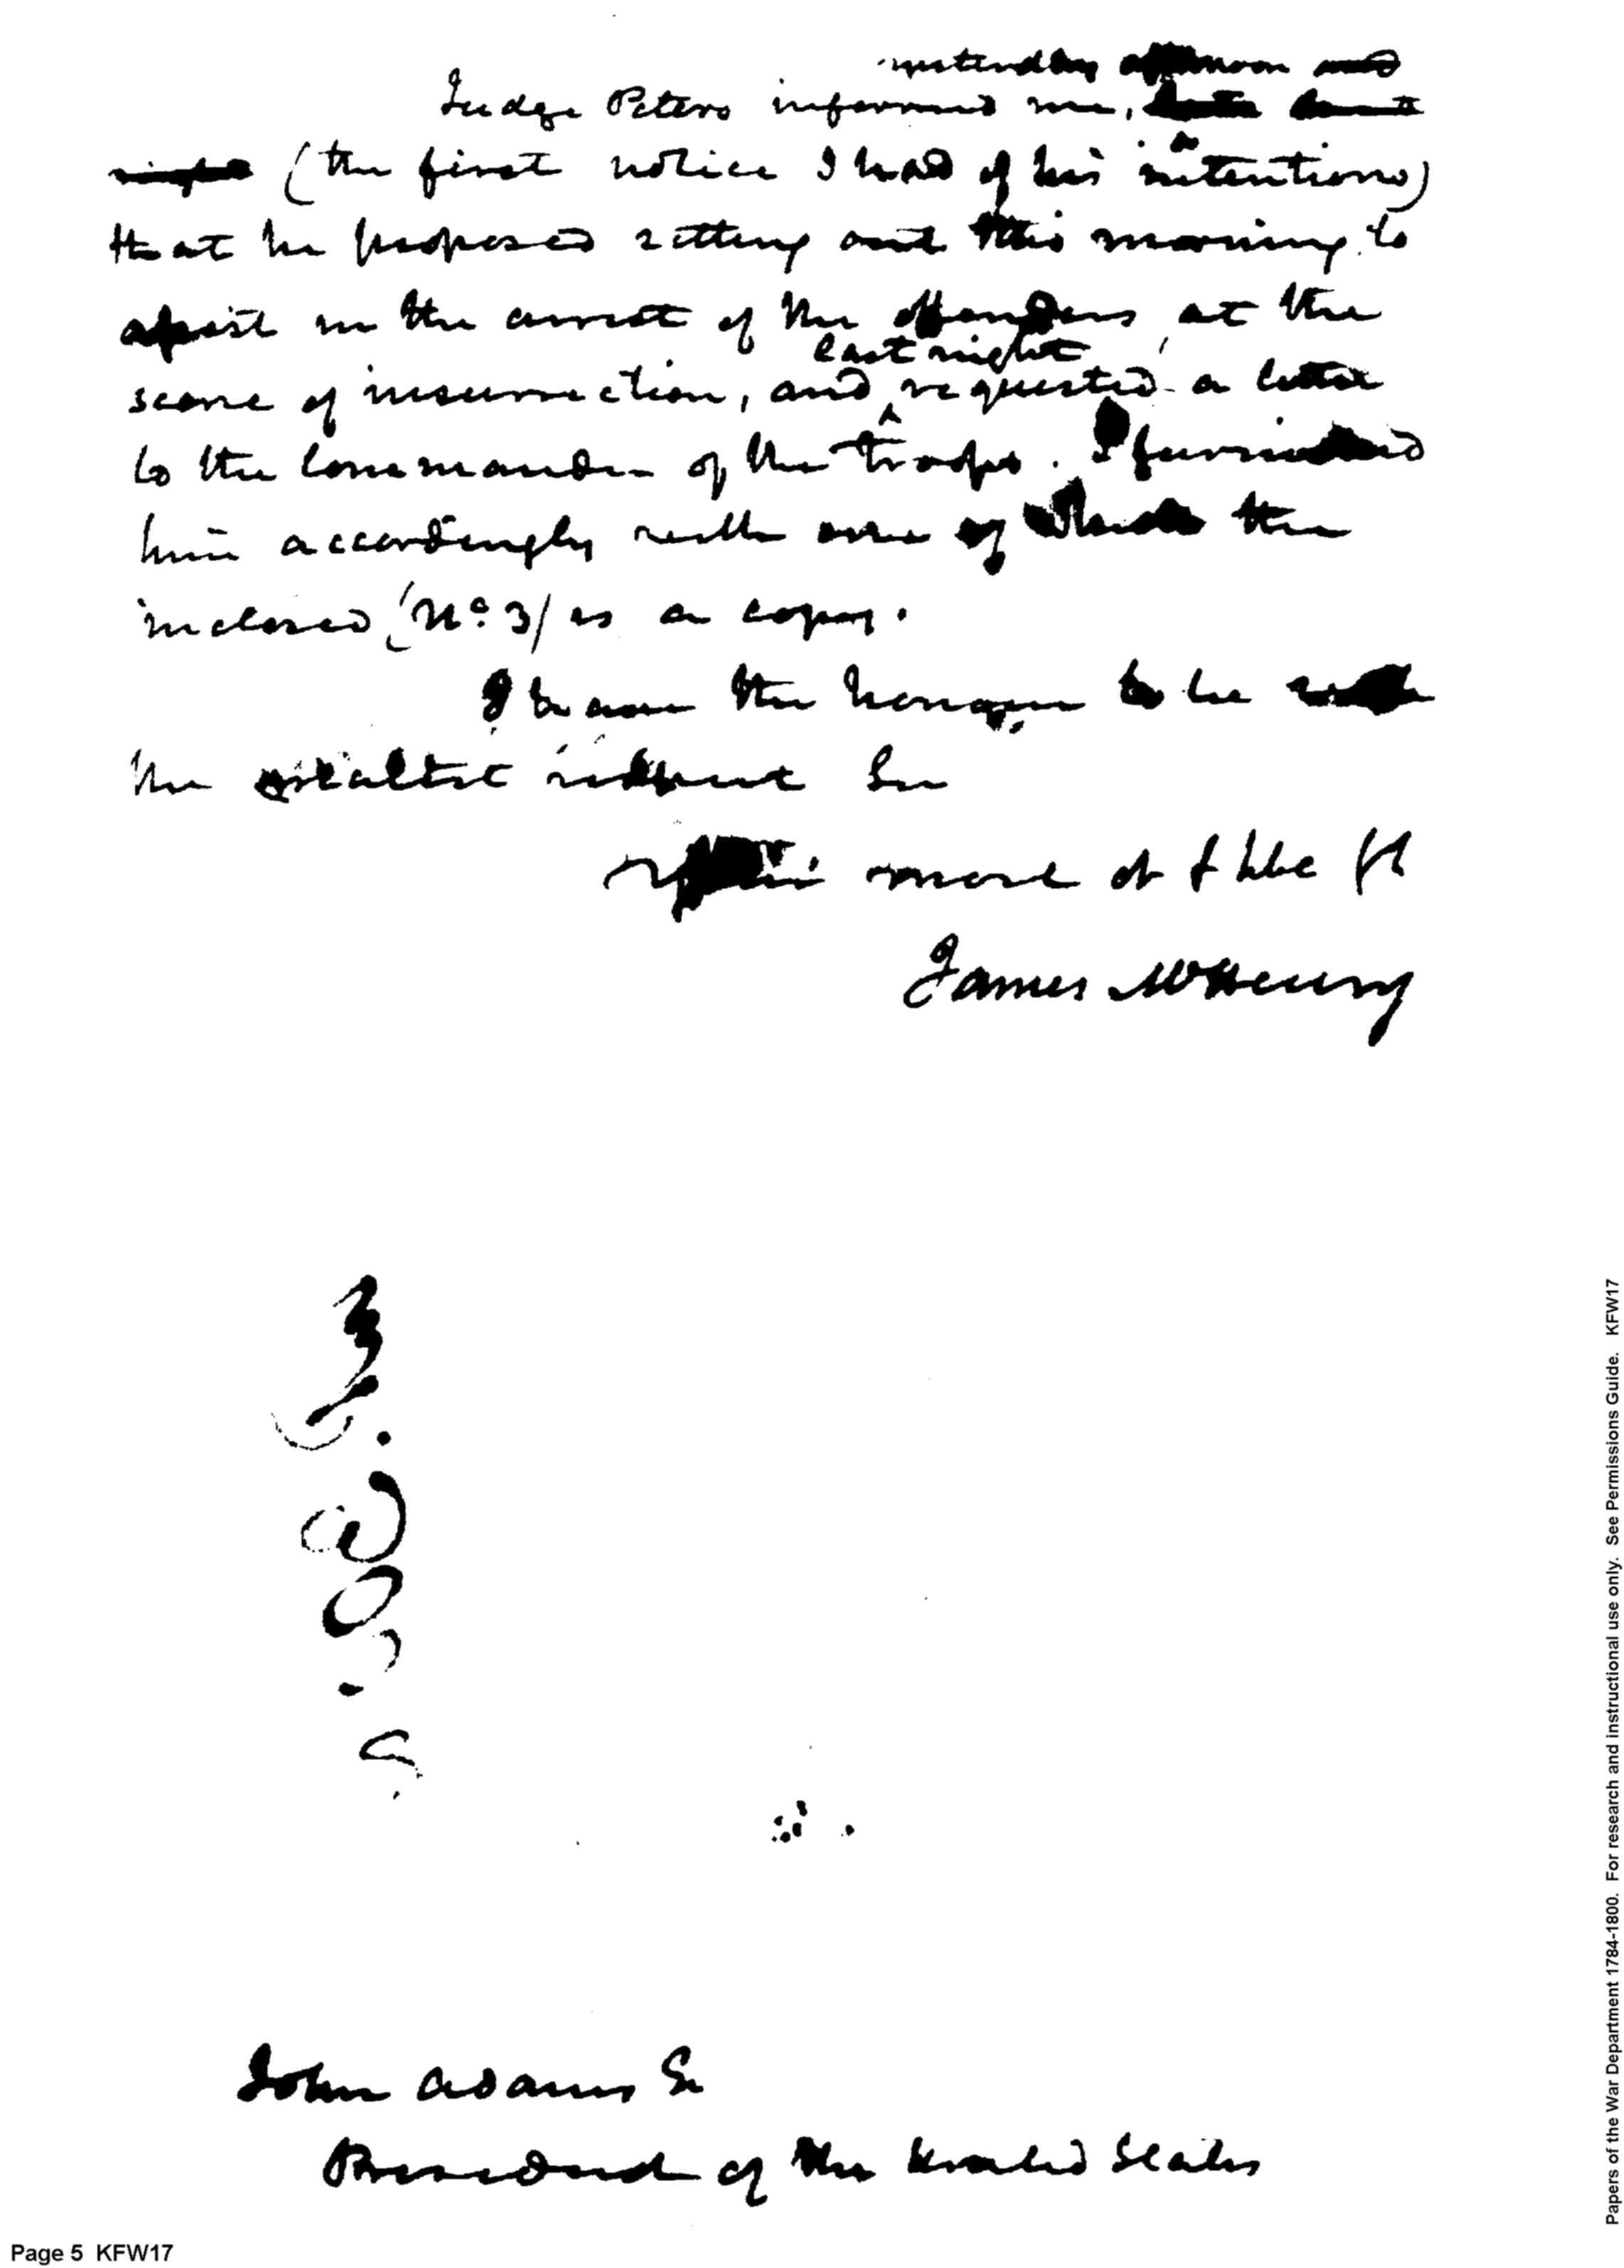 yesterday afternoon and
Judge Peters informed me,
night (the first notice I had of his intentions)
that he proposed setting out this morning to
assist in the arrest of the offenders, at the
last night
scene of insurrection, and requested a letter
to the commander of the troops. I furnished
him accordingly with one of which the
inclosed (No. 3/ is a copy.
I have the honour to be with
the greatest respect Sir
more ob & hble St
James McHenry
John Adams Esr
President of the United States
Page 5 KFW17
Papers of the War Department 1784-1800. For research and instructional use only. See Permissions Guide. KFW17